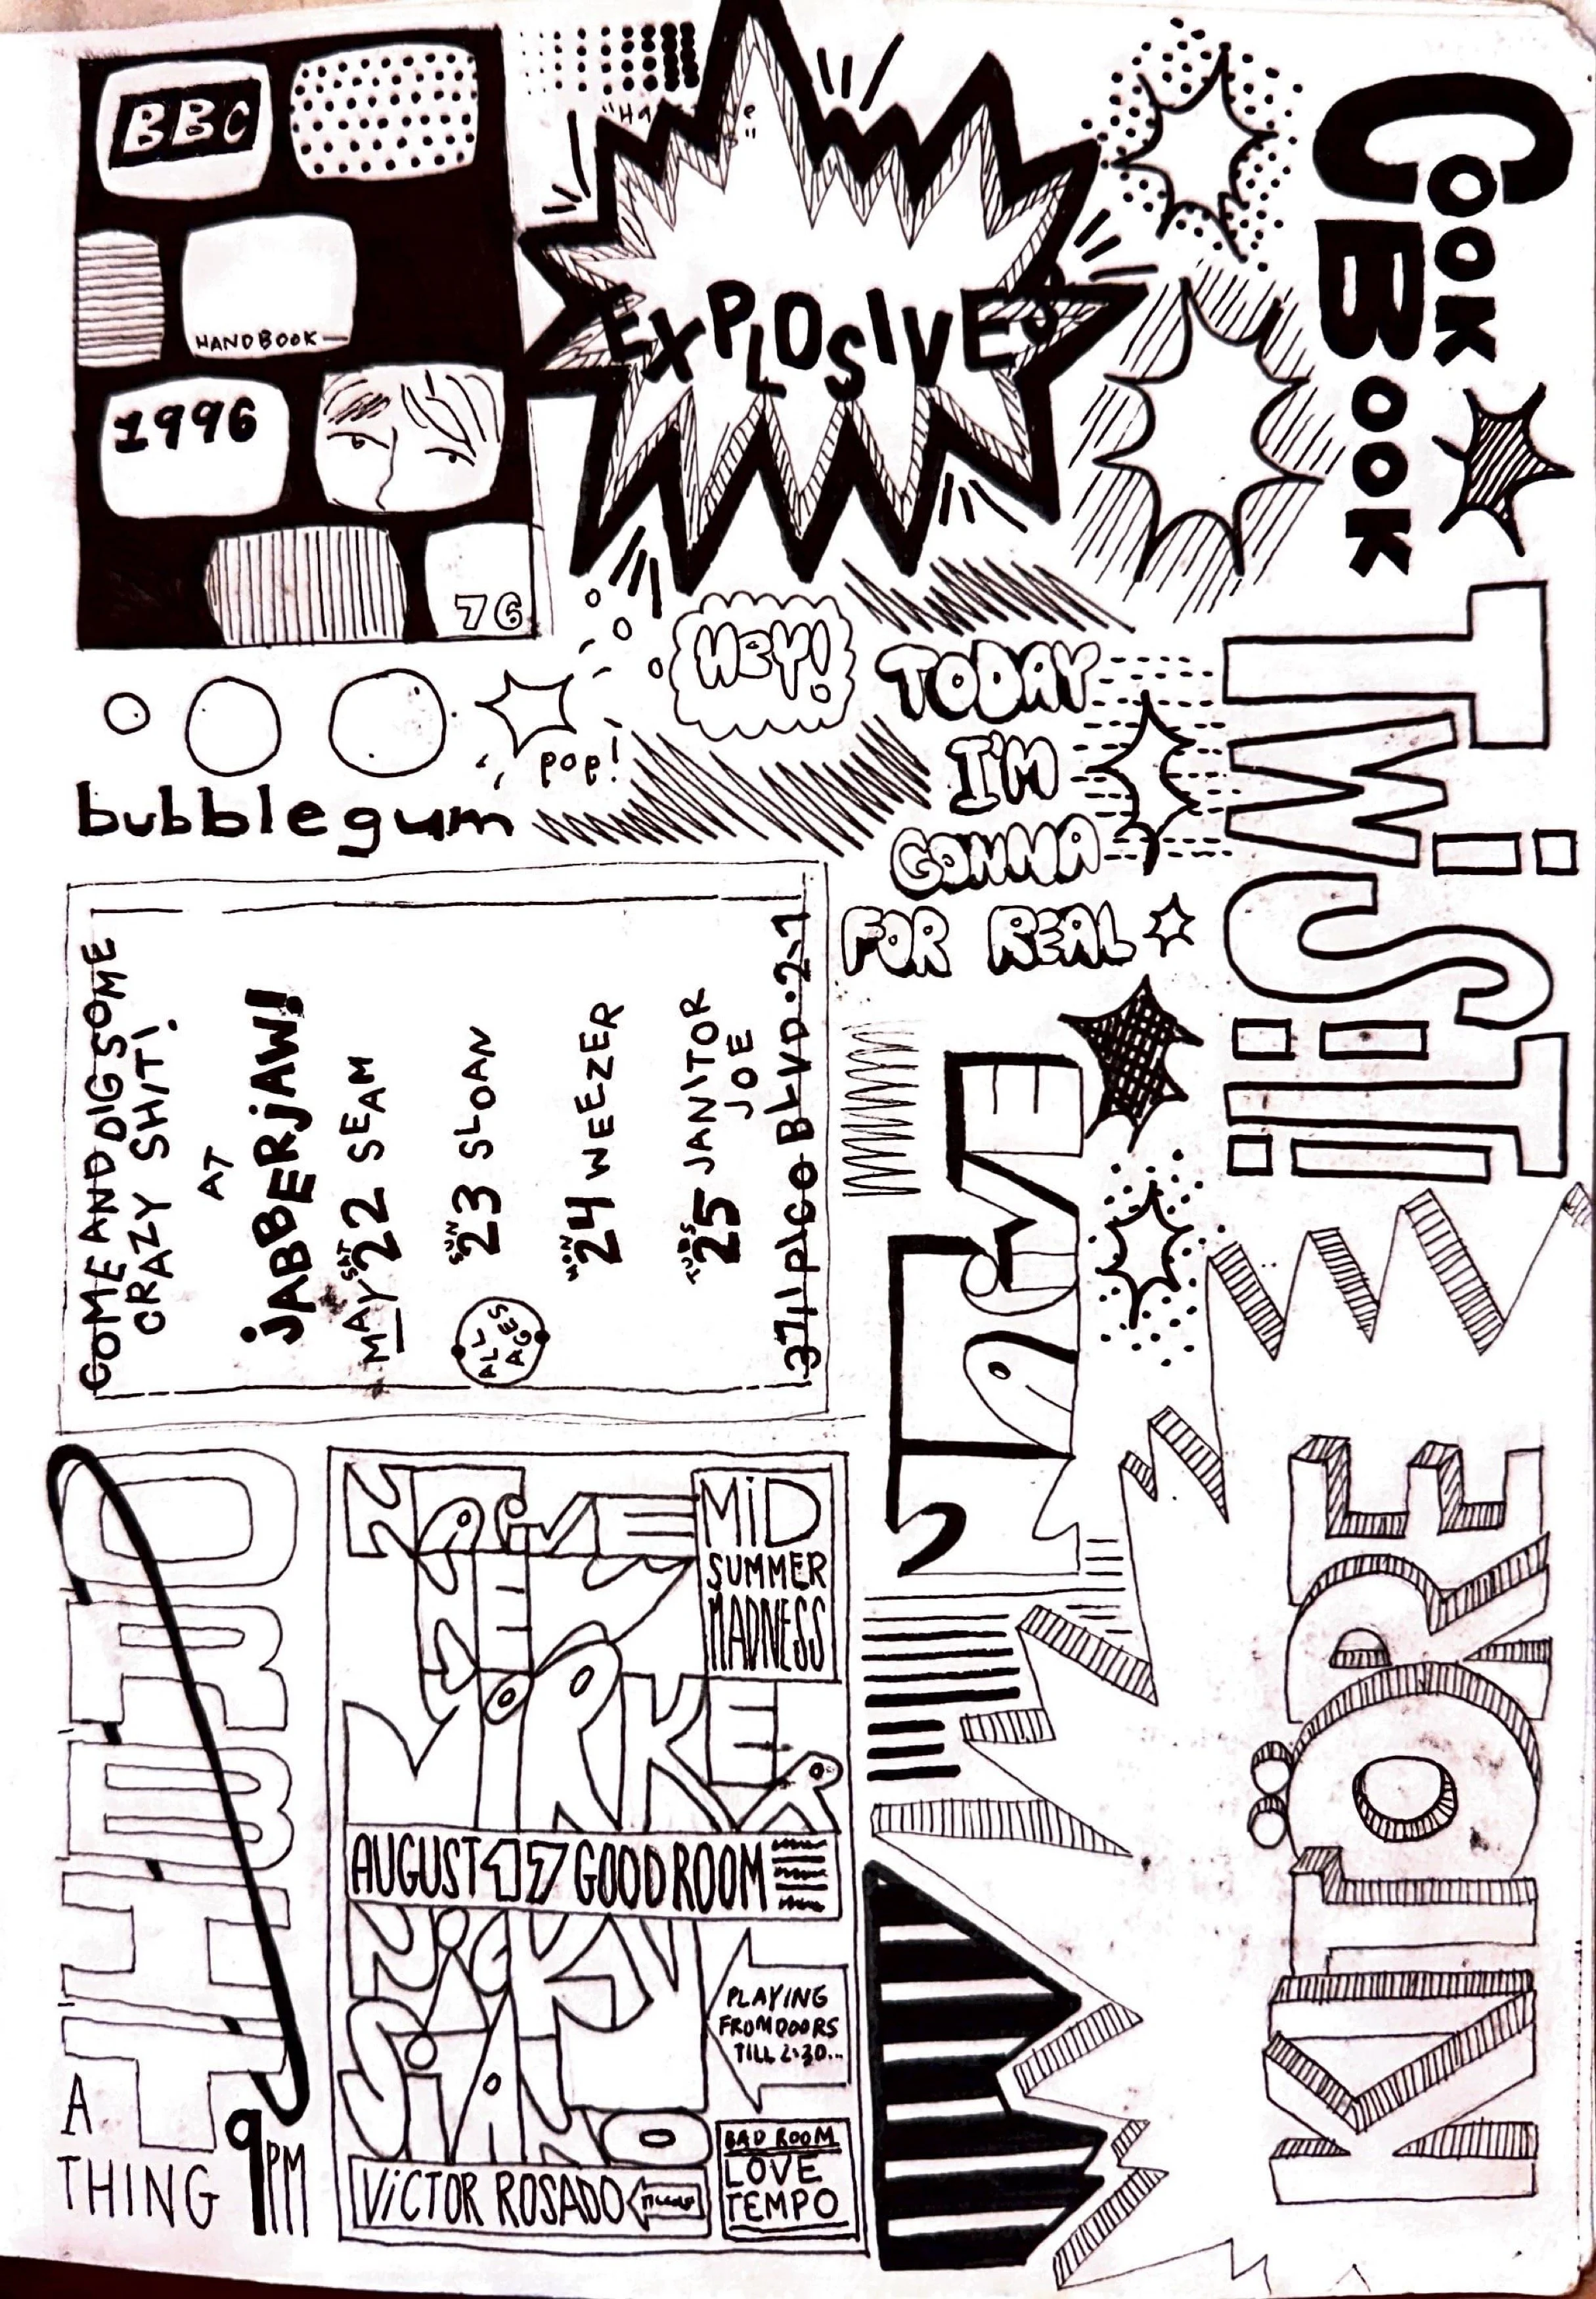 BBC
HANDBOOK
1996
76
EXPLOSIVE
COOK
BOOK
HEY!
TODAY
I'M
GONNA
FOR REAL
pop!
bubblegum
TWiST
COME AND DIG SOME
CRAZY SHIT!
AT
jABBERjAW!
MAY SAT 22 SEAM
SUN 23 SLOAN
MON 24 WEEZER
TUES 25 JANITOR
JOE
ALL
AGES
3711 PICO BLVD. 2-1
NAiVE
KITÖRE
ORBIT
A
THING
9PM
NAiVE
NEW
YORKER
MiD
SUMMER
MADNESS
AUGUST 17 GOOD ROOM
NiCKY
SiANO
PLAYING
FROM DOORS
TILL 2:30...
VICTOR ROSADO
BAD ROOM
LOVE
TEMPO